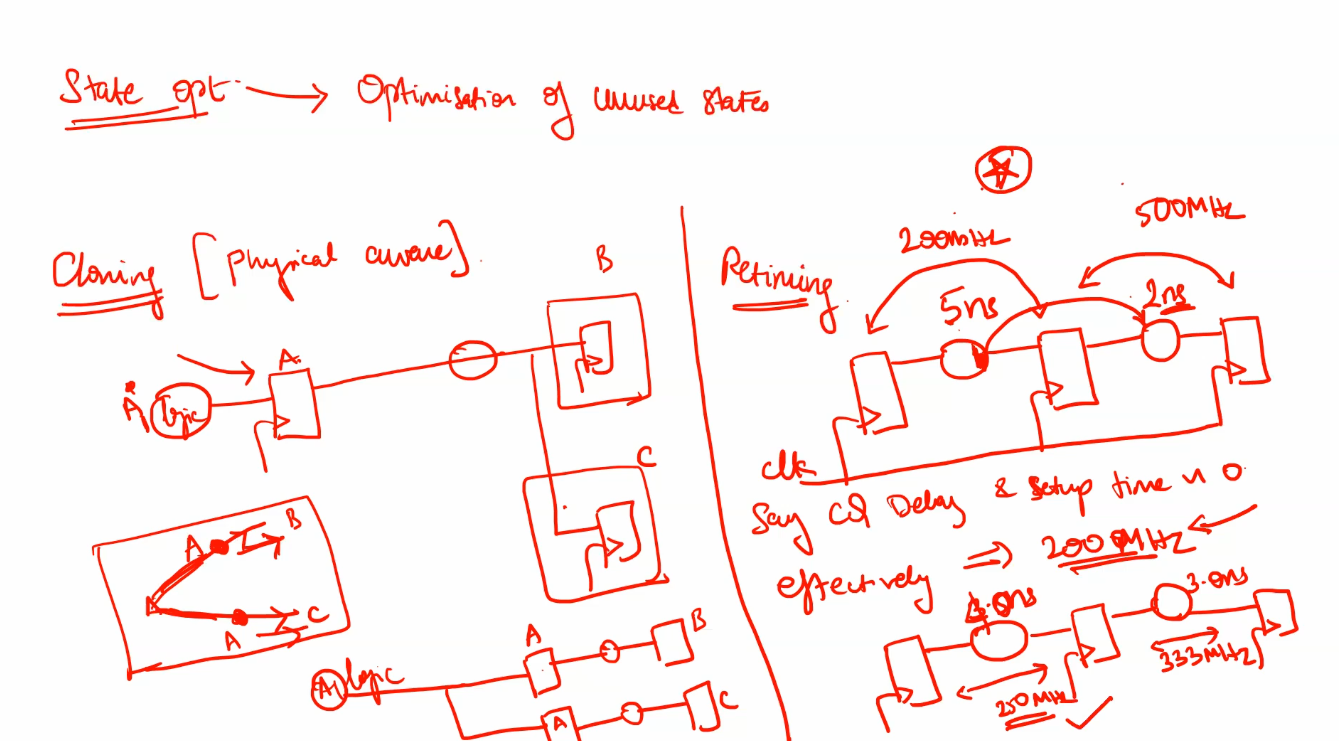 State opt. → Optimisation of unused states
Cloning [Physical aware]
B
A
A1 logic
C
A B
A C
A1 logic A B
A C
Retiming
200MHz 500MHz
5ns 2ns
clk
Say CQ Delay & setup time ~ 0
effectively ⇒ 200MHz
4.0ns 3.0ns
250MHz 333MHz